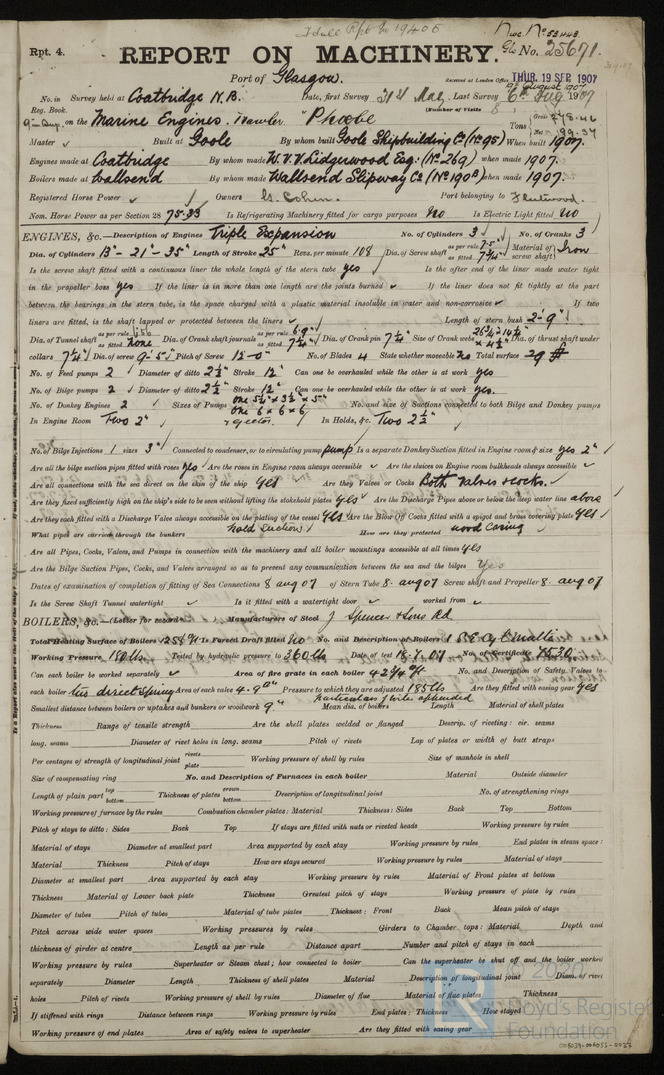 Rpt. 4.
REPORT ON MACHINERY.
No. 25671.
Port of Glasgow.
Received at London Office THUR. 19 SEP. 1907
No. in Survey held at Coatbridge N.B. Date, first Survey 31st May Last Survey 6th Aug 1907
Reg. Book. (Number of Visits
on the Marine Engines. "Phoebe" Tons
Master Built at Goole By whom built Goole Shipbuilding Co (No 95) When built 1907.
Engines made at Coatbridge By whom made W. V. V. Lidgerwood Esq: (No 269) when made 1907.
Boilers made at Wallsend By whom made Wallsend Slipway Co (No 190 ) when made 1907.
Registered Horse Power Owners Port belonging to Fleetwood.
Nom. Horse Power as per Section 28 75.33 Is Refrigerating Machinery fitted for cargo purposes No Is Electric Light fitted No
ENGINES, &c.—Description of Engines Triple Expansion No. of Cylinders 3 No. of Cranks 3
Dia. of Cylinders 13" - 21" - 35" Length of Stroke 25" Revs. per minute 108 Dia. of Screw shaft as per rule 7.5" as fitted 7 3/4" Material of screw shaft Iron
Is the screw shaft fitted with a continuous liner the whole length of the stern tube yes Is the after end of the liner made water tight
in the propeller boss yes If the liner is in more than one length are the joints burned If the liner does not fit tightly at the part
between the bearings in the stern tube, is the space charged with a plastic material insoluble in water and non-corrosive If two
liners are fitted, is the shaft lapped or protected between the liners Length of stern bush 2-9"
Dia. of Tunnel shaft as per rule as fitted none Dia. of Crank shaft journals as per rule 6.9" as fitted 7 1/4" Dia. of Crank pin 7 1/4" Size of Crank webs Dia. of thrust shaft under
collars 7 1/4" Dia. of screw 9-5" Pitch of Screw 12-0" No. of Blades 4 State whether moveable No Total surface 29 ff
No. of Feed pumps 2 Diameter of ditto 2 1/2" Stroke 12" Can one be overhauled while the other is at work yes
No. of Bilge pumps 2 Diameter of ditto 2 1/2" Stroke 12" Can one be overhauled while the other is at work yes.
No. of Donkey Engines 2 Sizes of Pumps one 5 1/4" x 3 1/2" x 5" one 6 x 6 x 6 No. and size of Suctions connected to both Bilge and Donkey pumps
In Engine Room Two 2" ejector. In Holds, &c. Two 2 1/2"
No. of Bilge Injections 1 sizes 3" Connected to condenser, or to circulating pump pump Is a separate Donkey Suction fitted in Engine room & size yes 2"
Are all the bilge suction pipes fitted with roses yes Are the roses in Engine room always accessible Are the sluices on Engine room bulkheads always accessible
Are all connections with the sea direct on the skin of the ship yes Are they Valves or Cocks Both valves & cocks.
Are they fixed sufficiently high on the ship's side to be seen without lifting the stokehold plates yes Are the Discharge Pipes above or below the deep water line above
Are they each fitted with a Discharge Valve always accessible on the plating of the vessel yes Are the Blow Off Cocks fitted with a spigot and brass covering plate yes
What pipes are carried through the bunkers hold suctions How are they protected wood casing
Are all Pipes, Cocks, Valves, and Pumps in connection with the machinery and all boiler mountings accessible at all times yes
Are the Bilge Suction Pipes, Cocks, and Valves arranged so as to prevent any communication between the sea and the bilges yes
Dates of examination of completion of fitting of Sea Connections 8 aug 07 of Stern Tube 8. aug 07 Screw shaft and Propeller 8. aug 07
Is the Screw Shaft Tunnel watertight Is it fitted with a watertight door worked from
BOILERS, &c.—(Letter for record ) Manufacturers of Steel J Spencer & Sons Ld
Total Heating Surface of Boilers Is Forced Draft fitted No No. and Description of Boilers
Working Pressure 180 lbs Tested by hydraulic pressure to 360 lbs Date of test 18.7.07 No. of Certificate 7530
Can each boiler be worked separately Area of fire grate in each boiler 42 3/4 No. and Description of Safety Valves to
each boiler two direct spring Area of each valve 4.90" Pressure to which they are adjusted 185 lbs Are they fitted with easing gear yes
Smallest distance between boilers or uptakes and bunkers or woodwork 9" Mean dia. of boilers Length Material of shell plates
Thickness Range of tensile strength Are the shell plates welded or flanged Descrip. of riveting: cir. seams
long. seams Diameter of rivet holes in long. seams Pitch of rivets Lap of plates or width of butt straps
Per centages of strength of longitudinal joint rivets plate Working pressure of shell by rules Size of manhole in shell
Size of compensating ring No. and Description of Furnaces in each boiler Material Outside diameter
Length of plain part top bottom Thickness of plates crown bottom Description of longitudinal joint No. of strengthening rings
Working pressure of furnace by the rules Combustion chamber plates: Material Thickness: Sides Back Top Bottom
Pitch of stays to ditto: Sides Back Top If stays are fitted with nuts or riveted heads Working pressure by rules
Material of stays Diameter at smallest part Area supported by each stay Working pressure by rules End plates in steam space:
Material Thickness Pitch of stays How are stays secured Working pressure by rules Material of stays
Diameter at smallest part Area supported by each stay Working pressure by rules Material of Front plates at bottom
Thickness Material of Lower back plate Thickness Greatest pitch of stays Working pressure of plate by rules
Diameter of tubes Pitch of tubes Material of tube plates Thickness: Front Back Mean pitch of stays
Pitch across wide water spaces Working pressures by rules Girders to Chamber tops: Material Depth and
thickness of girder at centre Length as per rule Distance apart Number and pitch of stays in each
Working pressure by rules Superheater or Steam chest; how connected to boiler Can the superheater be shut off and the boiler worked
separately Diameter Length Thickness of shell plates Material Description of longitudinal joint Diam. of rivet
holes Pitch of rivets Working pressure of shell by rules Diameter of flue Material of flue plates Thickness
If stiffened with rings Distance between rings Working pressure by rules End plates: Thickness How stayed
Working pressure of end plates Area of safety valves to superheater Are they fitted with easing gear
© 2020
Lloyd's Register
Foundation